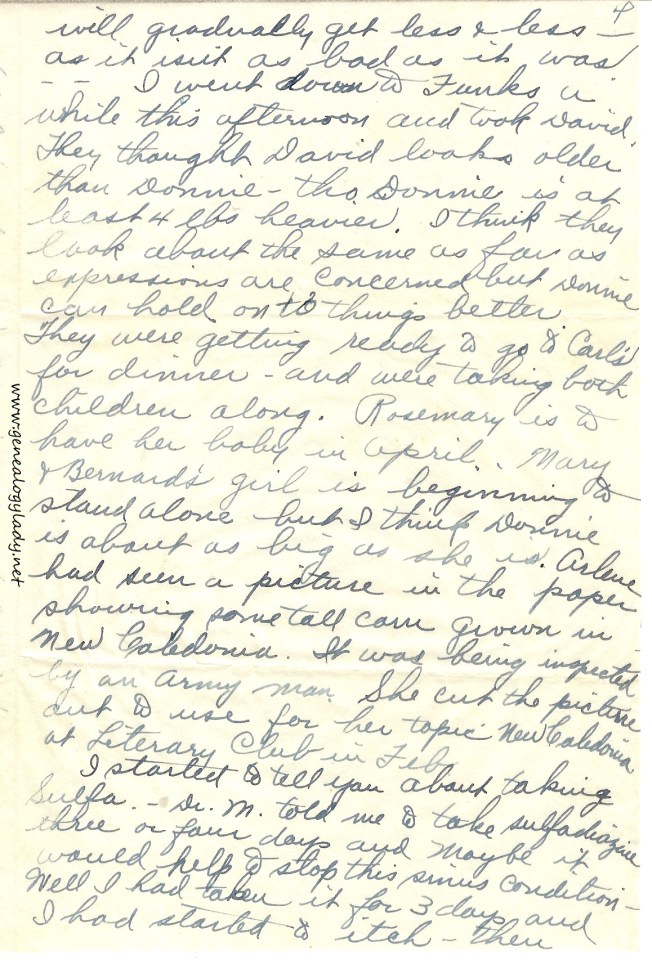 4
will gradually get less & less –
as it isn't as bad as it was
– – I went down to Funks a
while this afternoon and took David.
They thought David looks older
than Donnie – tho Donnie is at
least 4 lbs heavier. I think they
look about the same as far as
expressions are concerned but Donnie
can hold on to things better.
They were getting ready to go to Carls
for dinner – and were taking both
children along. Rosemary is to
have her baby in April. Mary
& Bernard's girl is beginning to
stand alone but I think Donnie
is about as big as she is. Arlene
had seen a picture in the paper
showing some tall corn grown in
New Caledonia. It was being inspected
by an Army man. She cut the picture
out to use for her topic New Caledonia
at Literary Club in Feb.
I started to tell you about taking
Sulfa. – Dr. M. told me to take sulfadiazine
three or four days and maybe it
would help to stop this sinus condition –
Well I had taken it for 3 days and
I had started to itch – then
www.genealogylady.net